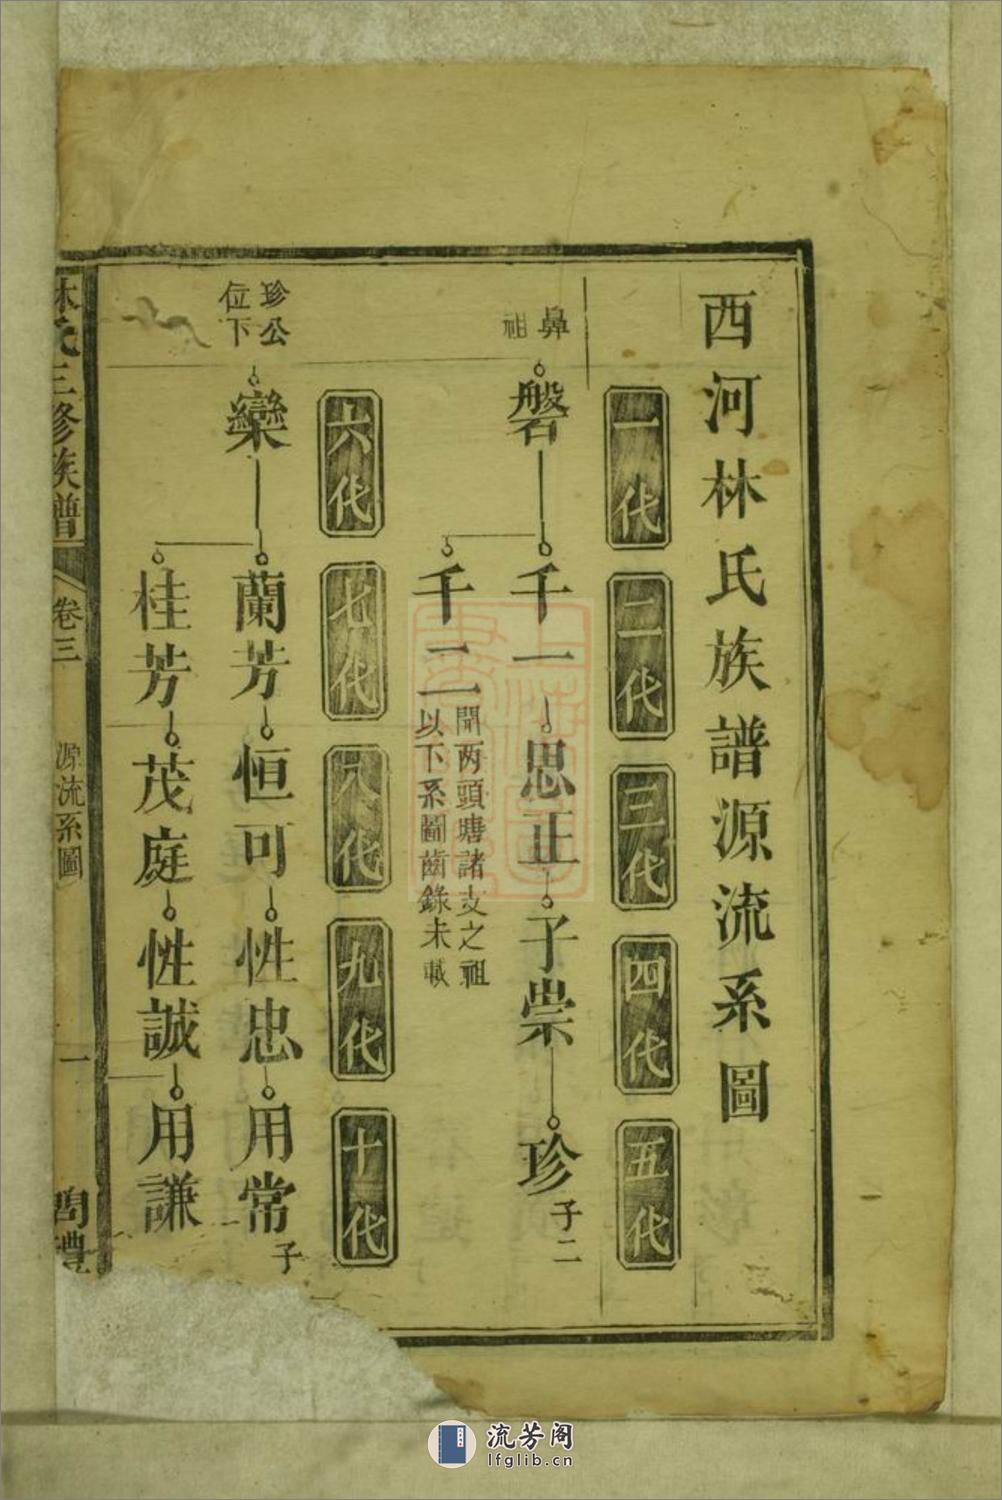 西河林氏族譜源流系圖
一代
二代
三代
四代
五代
鼻祖
磐
千一
思正
子崇
珍
子二
千二
開两頭塘諸支之祖
以下系圖齒錄未載
六代
七代
八代
九代
十代
珍公
位下
欒
蘭芳
恒可
性忠
用常
子
桂芳
茂庭
性誠
用謙
林氏三修族譜
卷三
源流系圖
一
流芳阁
lfglib.cn